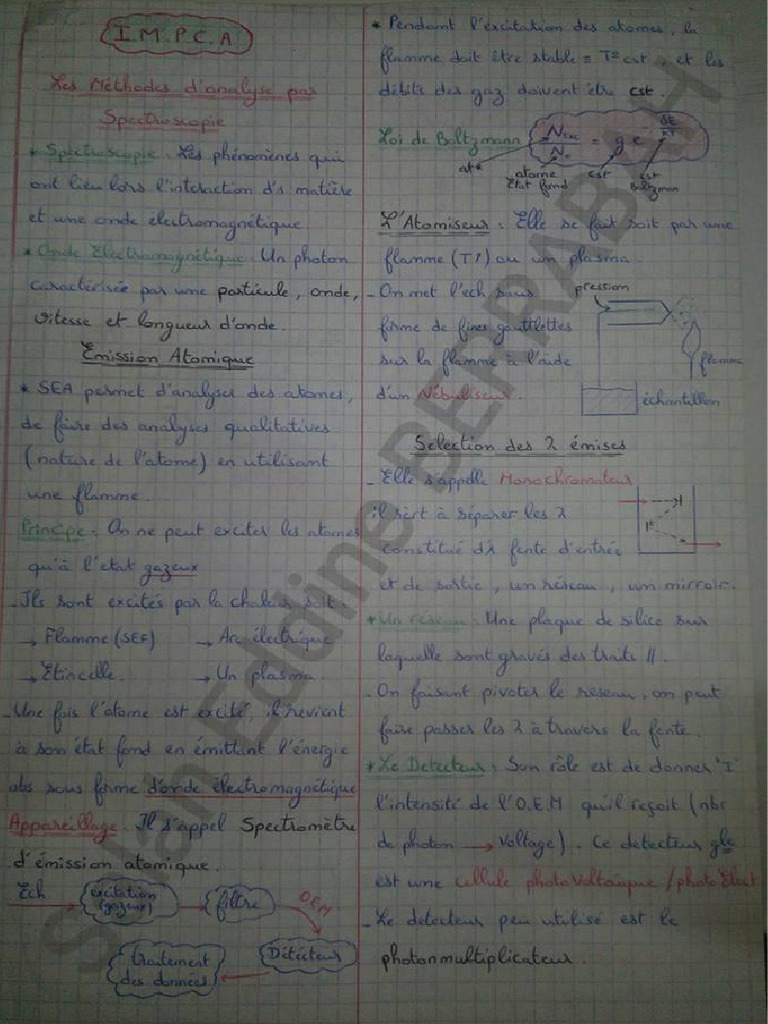 I.M.P.C.A
Les Méthodes d'analyse par
Spectroscopie
* Spectroscopie : Les phénomènes qui
ont lieu lors l'intéraction d's matière
et une onde électromagnétique.
* Onde Electromagnétique : Un photon
caractérisée par une particule, onde,
vitesse et longueur d'onde.
Emission Atomique
* SEA permet d'analyser des atomes,
de faire des analyses qualitatives
(nature de l'atome) en utilisant
une flamme.
Principe : On ne peut exciter les atomes
qu'à l'etat gazeux
- Ils sont excités par la chaleur soit
→ Flamme (SEF) → Arc électrique
→ Etincelle. → Un plasma.
- Une fois l'atome est excité, il revient
à son état fond en émittant l'énergie
abs sous forme d'onde électromagnétique
Appareillage : Il s'appel Spectromètre
d'émission atomique.
Ech
excitation
(gazeux)
filtre
OEM
Détécteur
traitement
des données
* Pendant l'excitation des atomes, la
flamme doit être stable = T° cst, et les
débits des gaz doivent être cst.
Loi de Boltzmann
Nexc / N° = g e
at*
atome
Etat fond
cst
cst
Boltzman
L'Atomiseur : Elle se fait soit par une
flamme (T↑) ou un plasma.
- On met l'ech sous
forme de fines gouttlettes
sur la flamme à l'aide
d'un Nébuliseur.
pression
flamme
échantillon
Selection des λ émises
- Elle s'appelle Monochromateur
il sert à séparer les λ
constitué d's fente d'entrée
et de sortie, un réseau, un mirroir.
* Un réseau : Une plaque de silice sur
laquelle sont gravés des traits //.
- On faisant pivoter le reseau, on peut
faire passer les λ à travers la fente.
* Le Detecteur : Son rôle est de donner "I"
l'intensité de l'O.E.M qu'il reçoit (nbr
de photon → Voltage). Ce detecteur gle
est une cellule photoVoltaïque / photoElect
- Le détecteur peu utilisé est le
photonmultiplicateur.
Salah Eddine BERRABAH